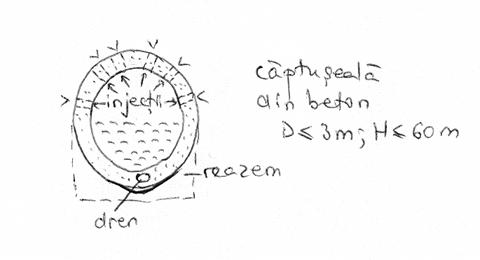 căptușeală
din beton
D ≤ 3m; H ≤ 60m
injecții
reazem
dren